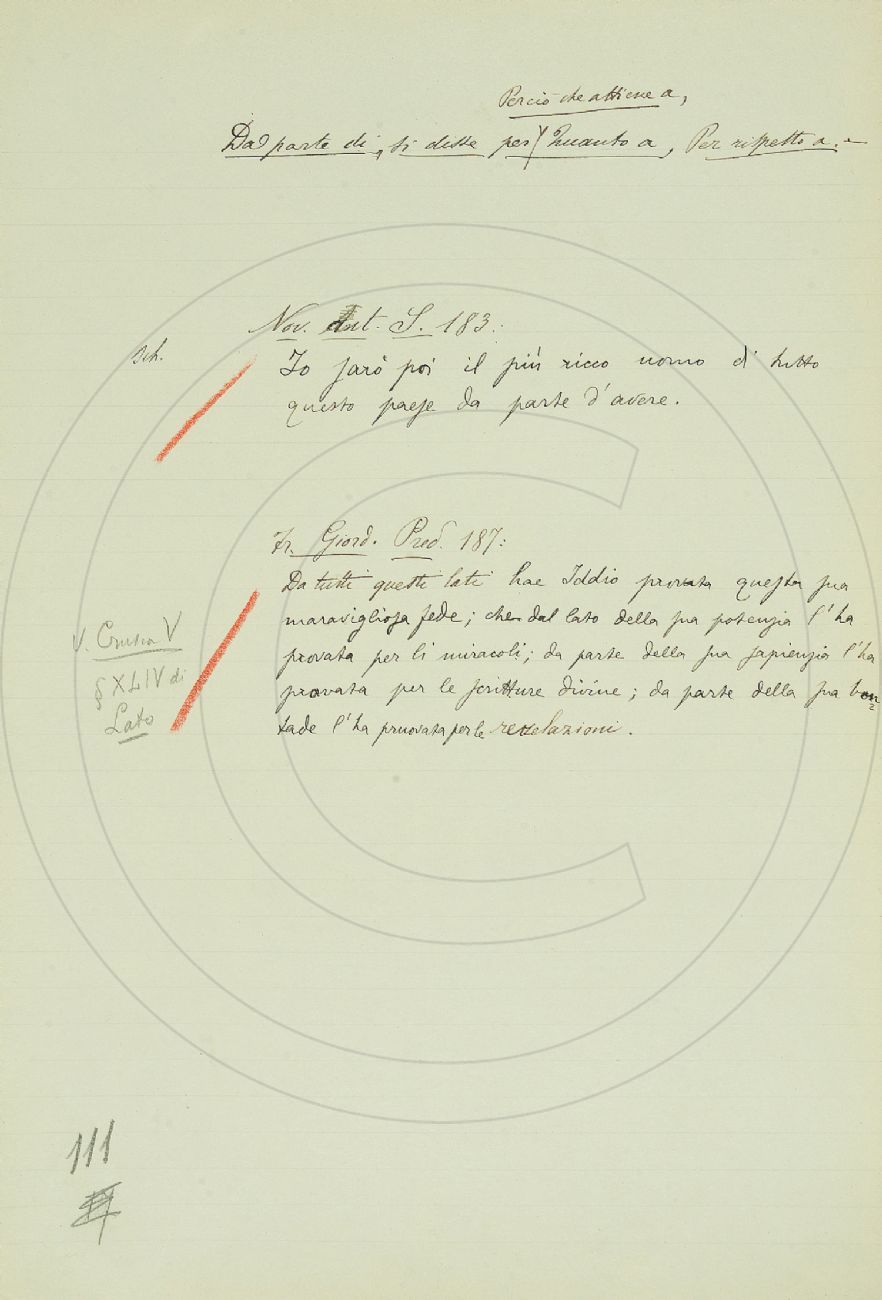 Perciò che attiene a,
Da parte di, si disse per Quanto a, Per rispetto a. –
Nov. Ant. S. 183:
sch.
Io sarò poi il più ricco uomo di tutto
questo paese da parte d'avere.
Fr. Giord. Pred. 187:
Da tutti questi lati hae Iddio provata questa sua
maravigliosa fede; che dal lato della sua potenzia l'ha
provata per li miracoli; da parte della sua sapienzia l'ha
provata per le scritture divine; da parte della sua bon=
tade l'ha pruovata per le revelazioni.
V. Crusca V
§ XLIV di
Lato
111